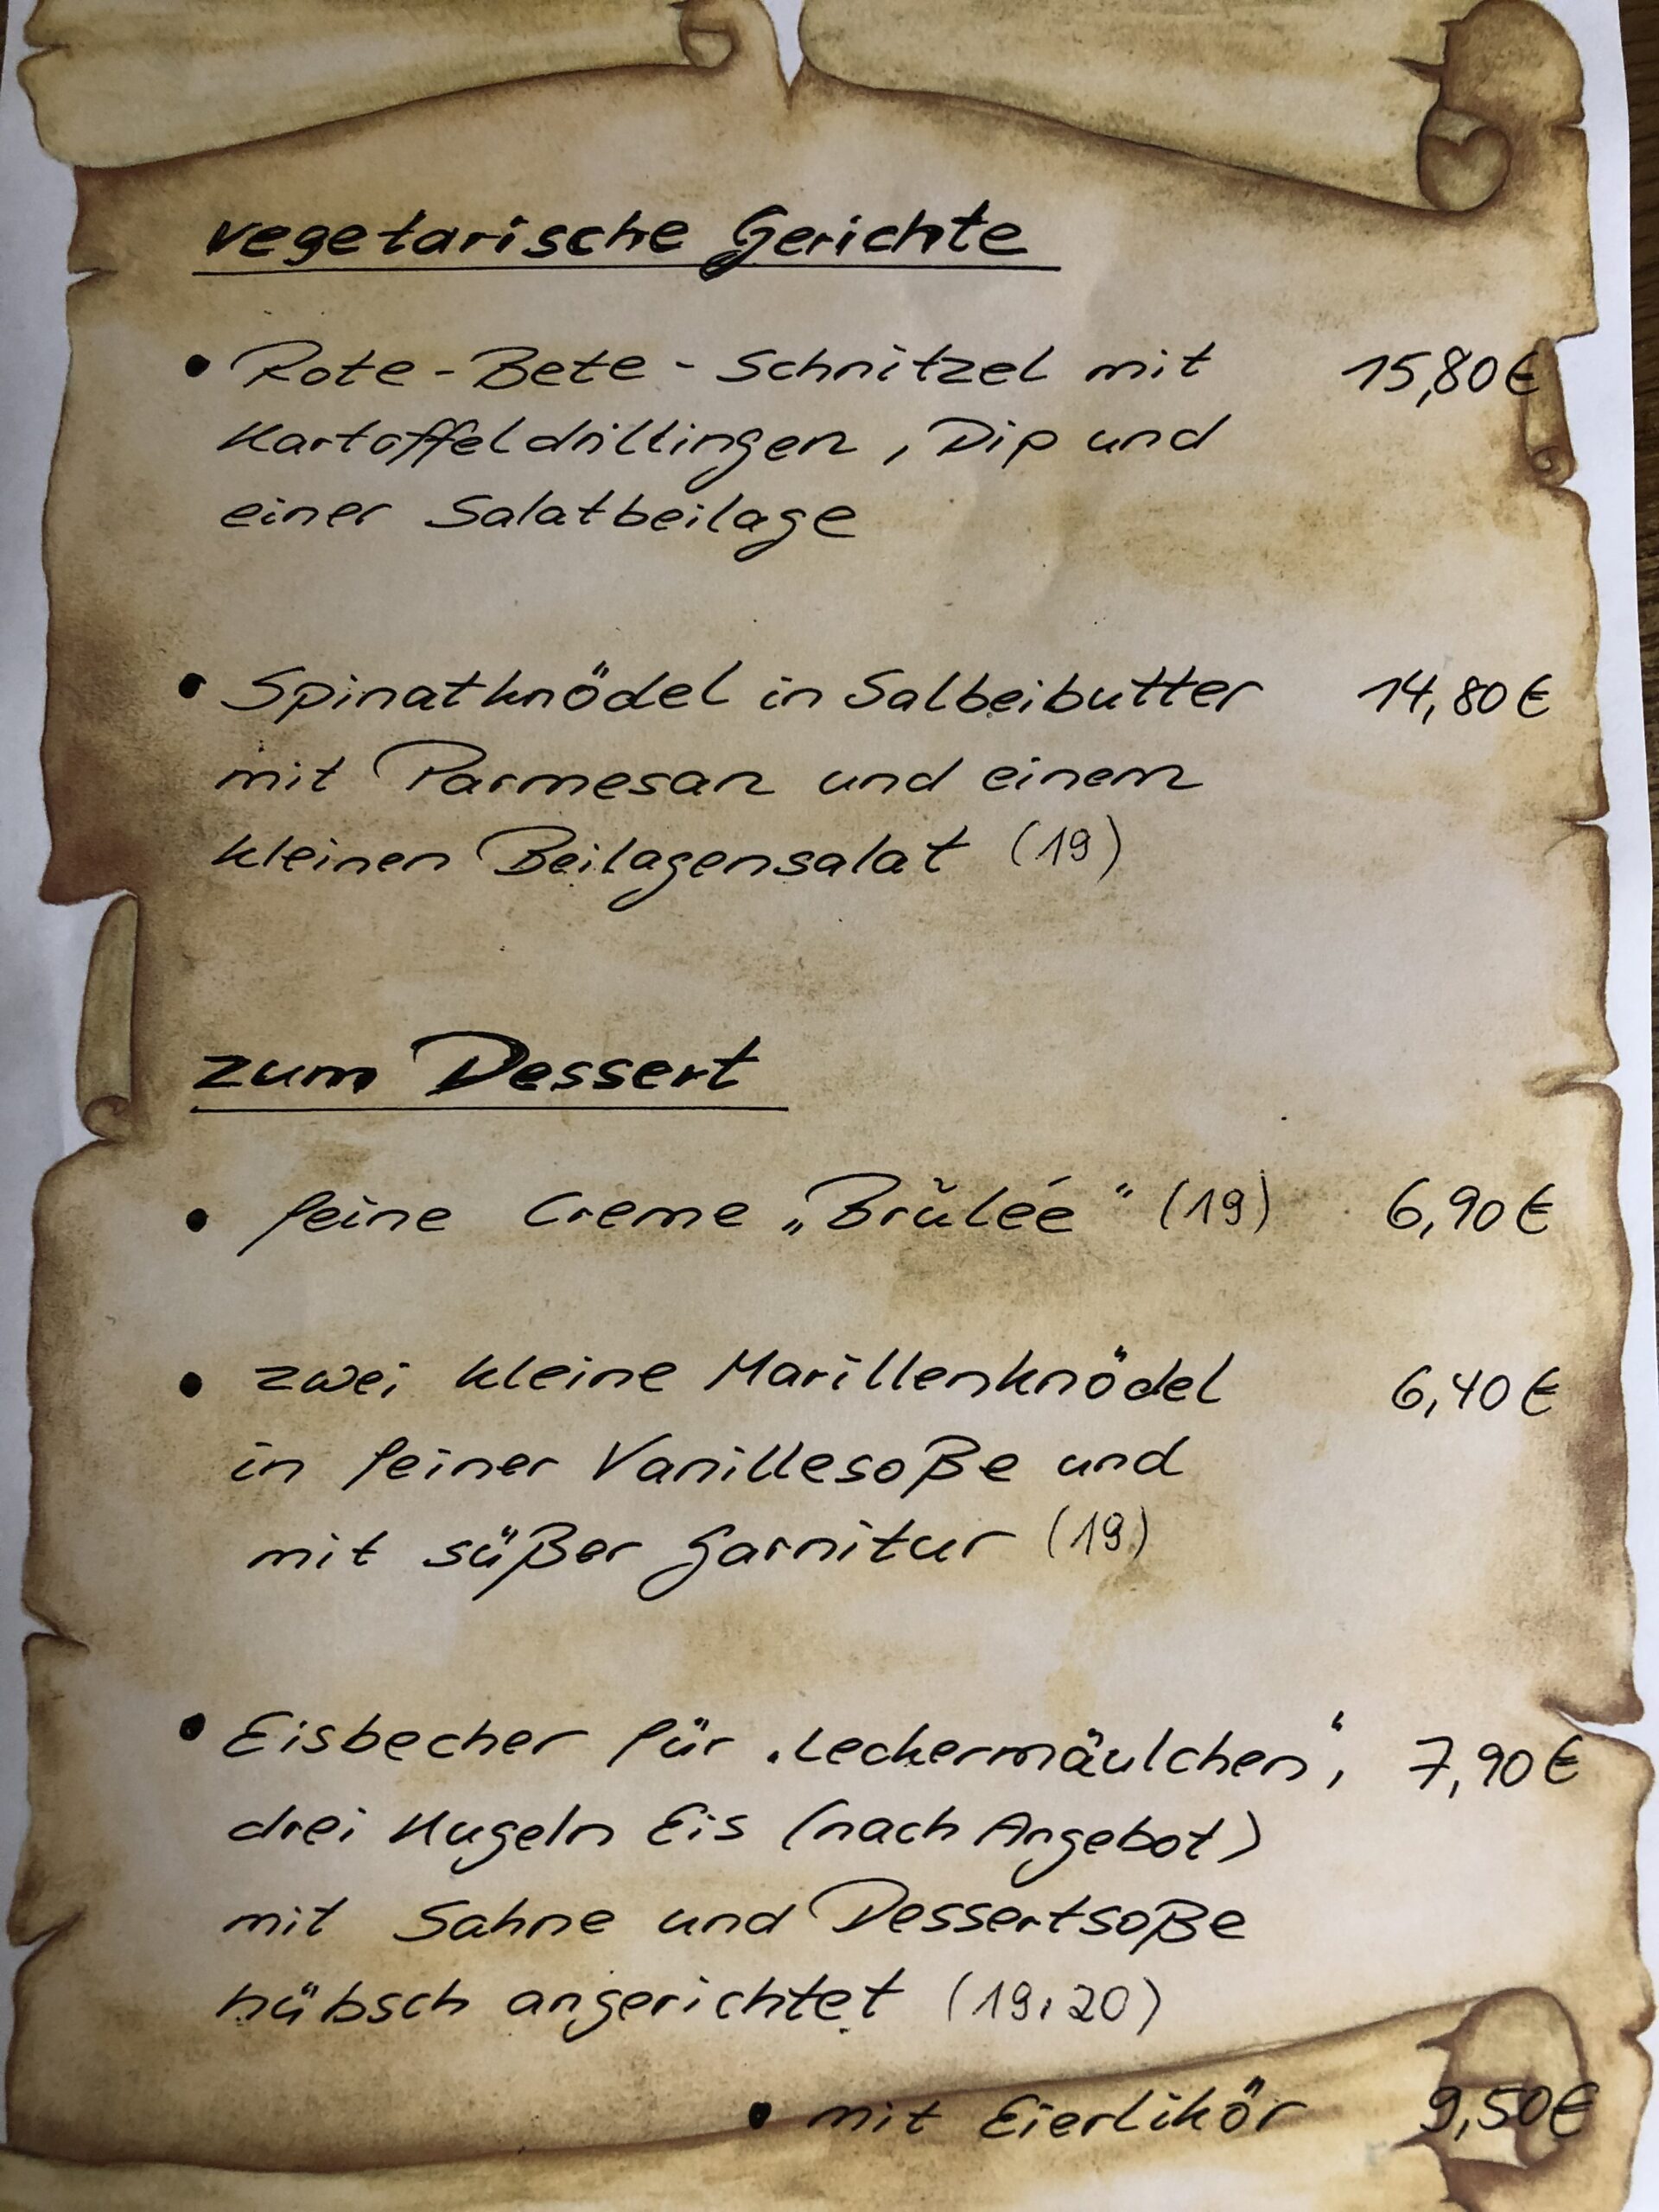 vegetarische Gerichte
• Rote-Bete-Schnitzel mit 15,80€
Kartoffeldrillingen, Dip und
einer Salatbeilage
• Spinatknödel in Salbeibutter 14,80€
mit Parmesan und einem
kleinen Beilagensalat (19)
zum Dessert
• feine Creme „Brûlée“ (19) 6,90€
• zwei kleine Marillenknödel 6,40€
in feiner Vanillesoße und
mit süßer Garnitur (19)
• Eisbecher für „Leckermäulchen“, 7,90€
drei Kugeln Eis (nach Angebot)
mit Sahne und Dessertsoße
hübsch angerichtet (19,20)
• mit Eierlikör 9,50€